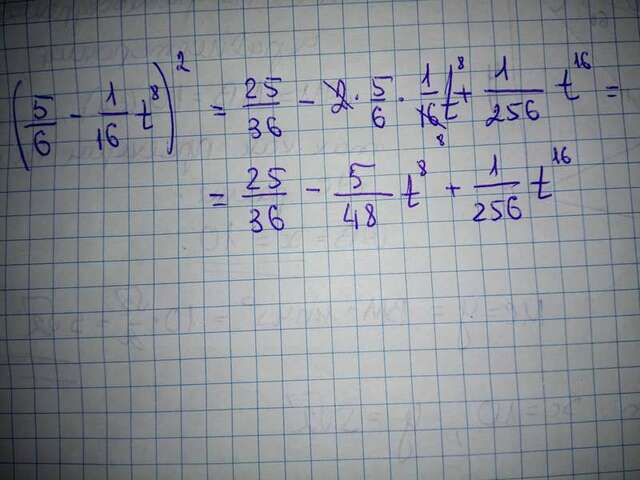 (5/6 - 1/16 t^8)^2 = 25/36 - 2 · 5/6 · 1/16 t^8 + 1/256 t^16 =
8
= 25/36 - 5/48 t^8 + 1/256 t^16